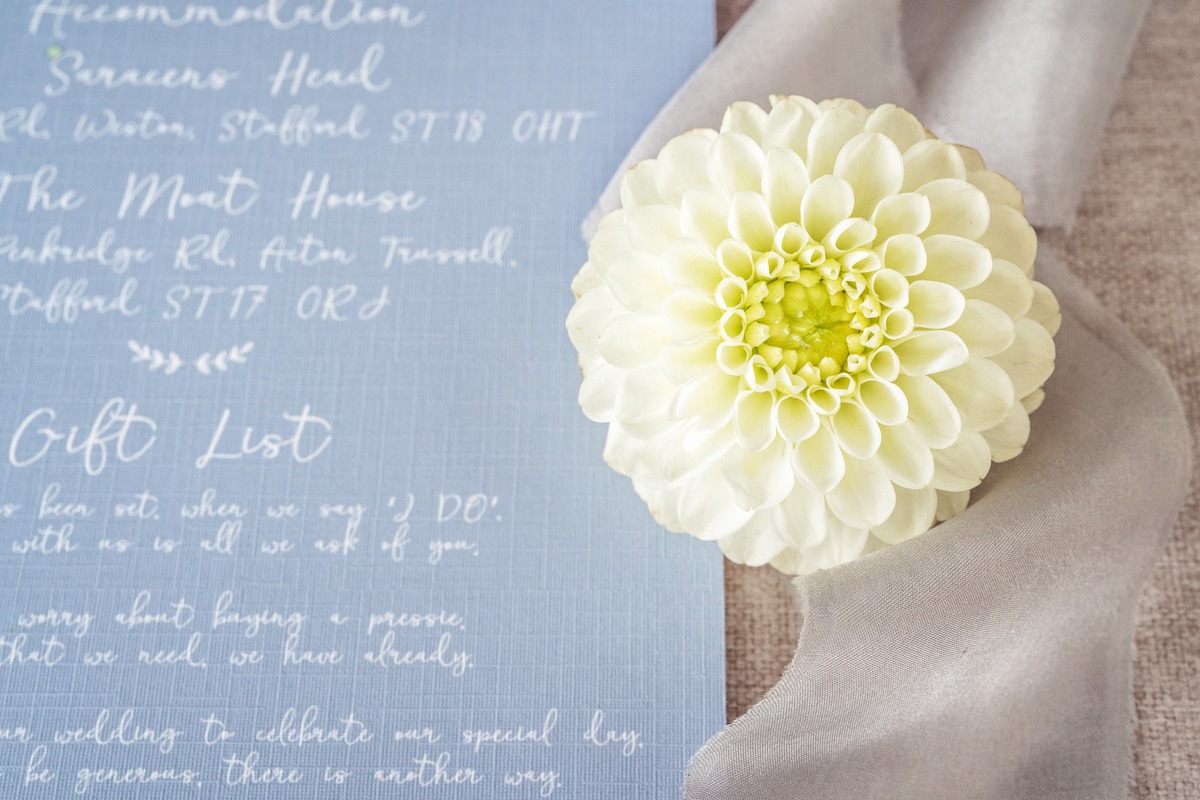 Accommodation
Saracens Head
Rd, Weston, Stafford ST18 0HT
The Moat House
Penkridge Rd, Acton Trussell,
Stafford ST17 0RJ
Gift List
been set, when we say 'I DO'.
with us is all we ask of you,
worry about buying a pressie,
that we need, we have already.
our wedding to celebrate our special day,
be generous, there is another way.